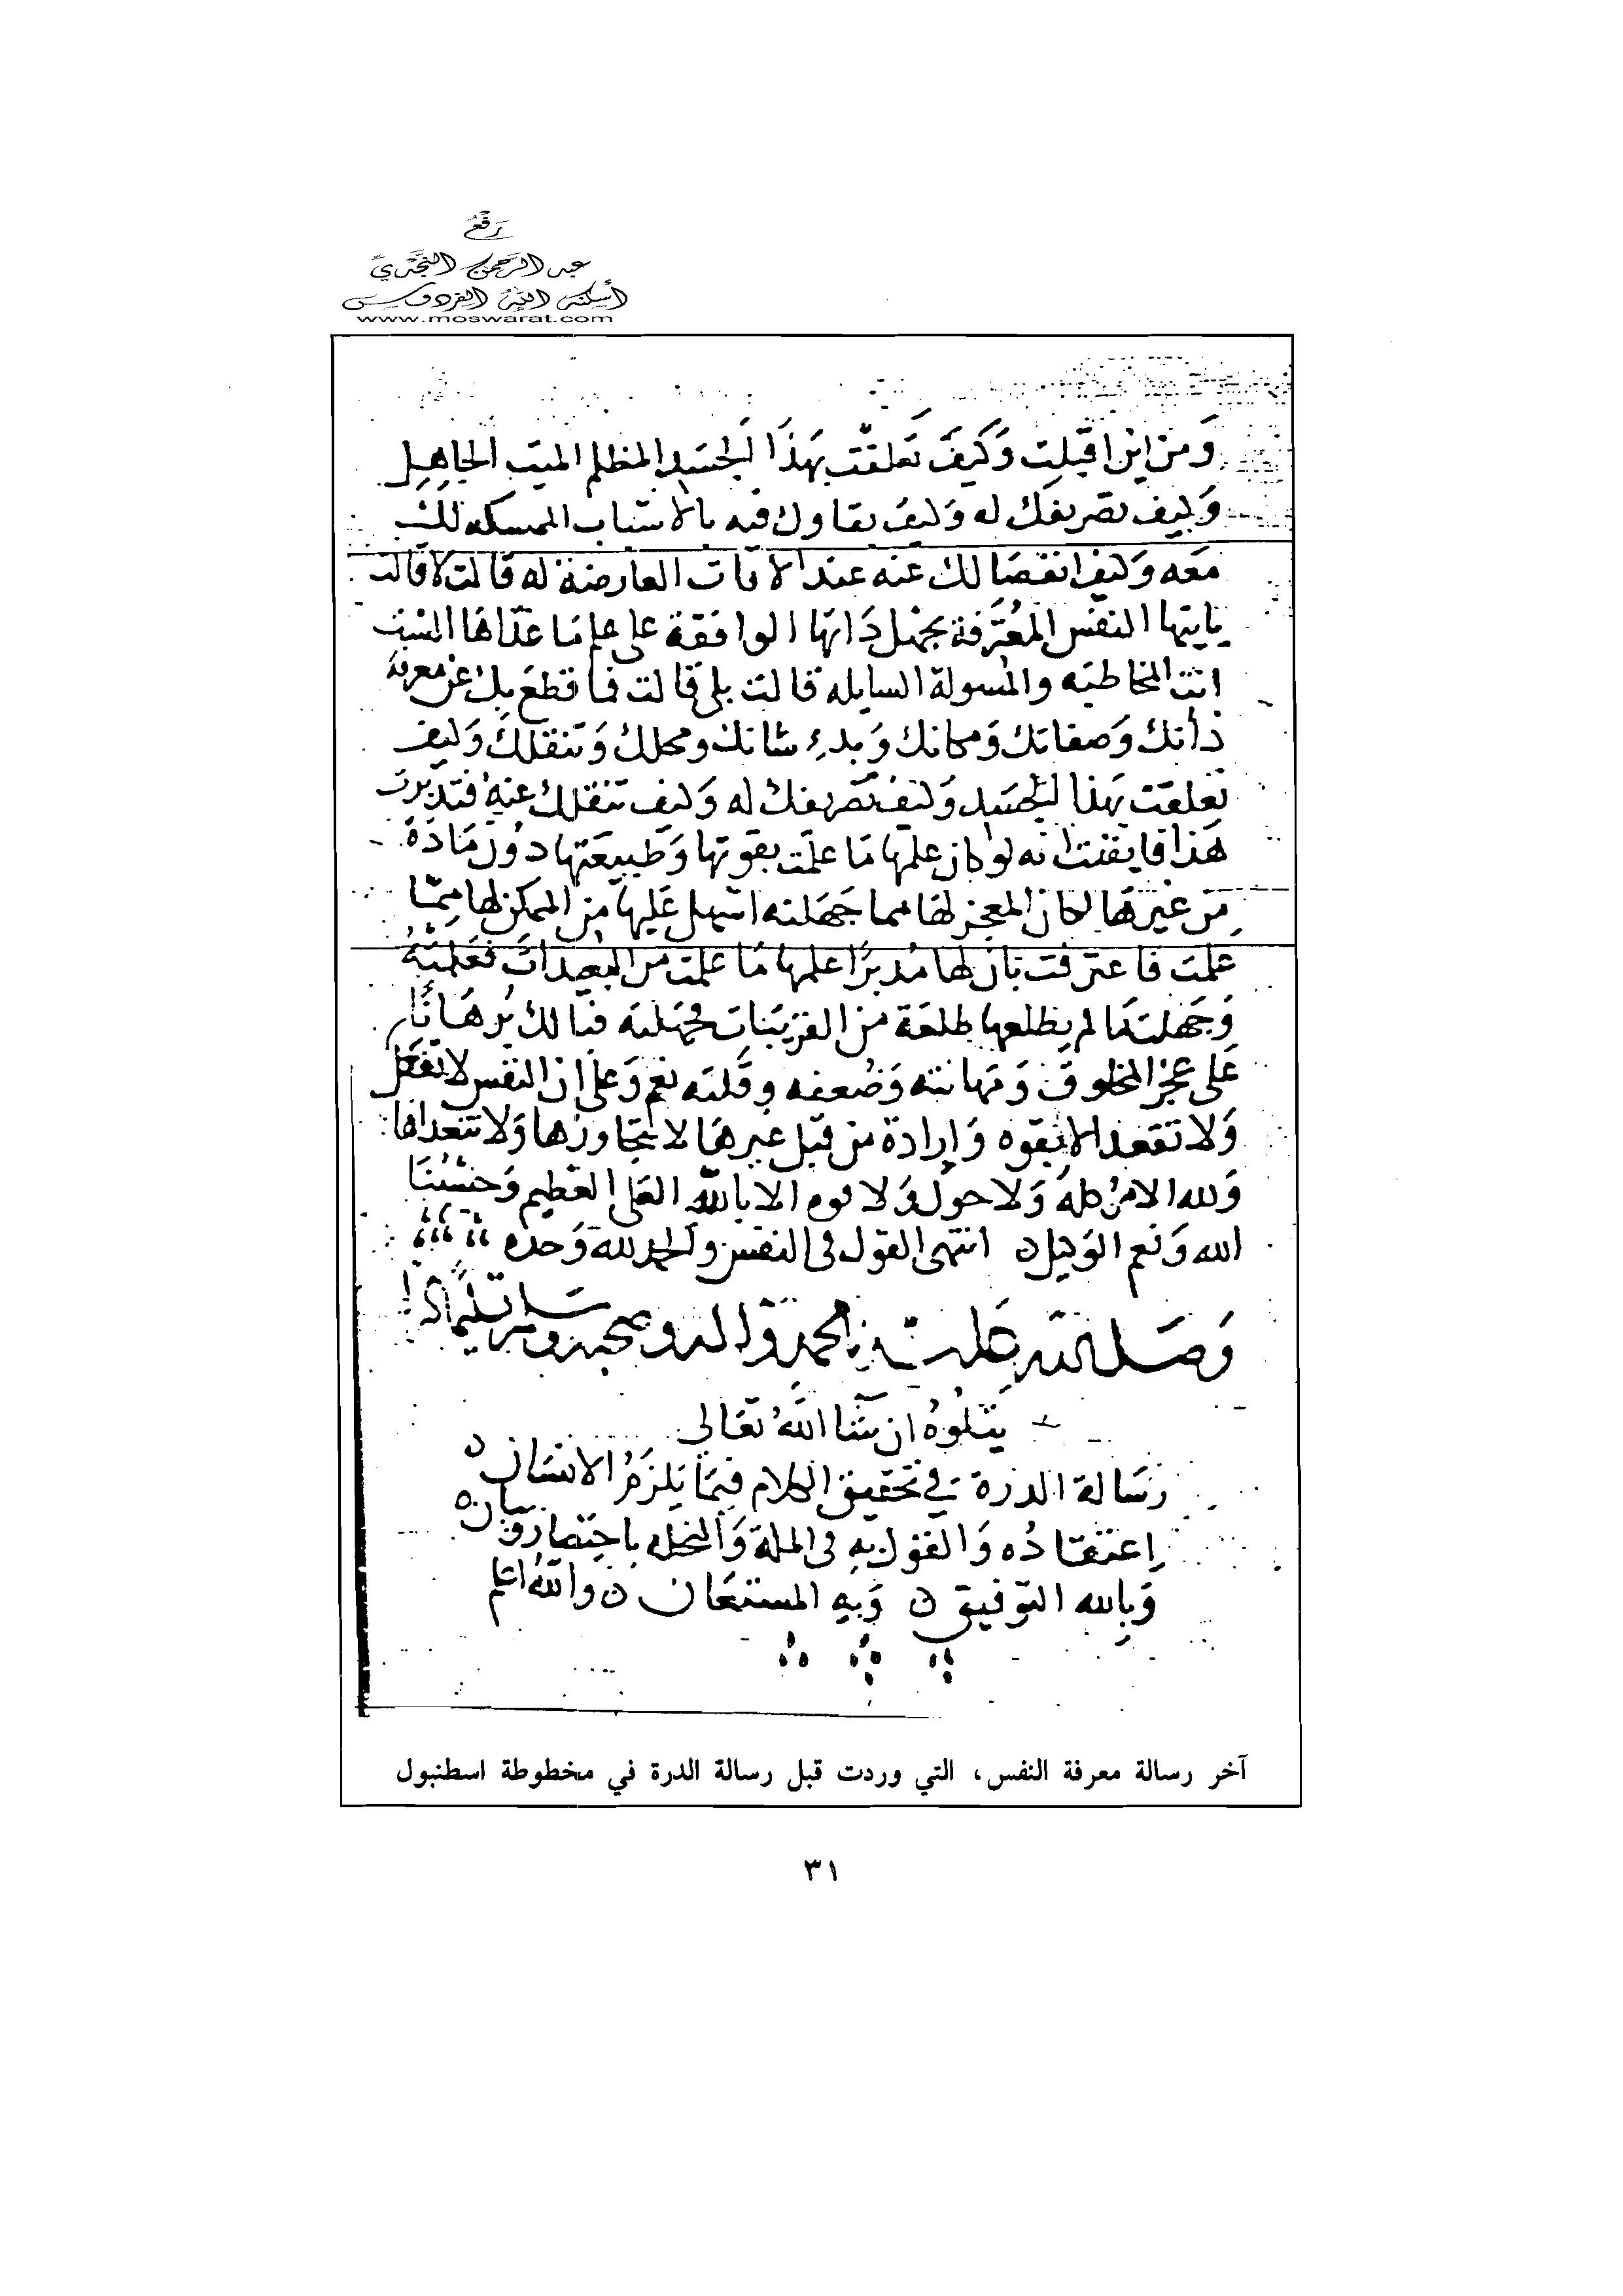 رَفْعُ
عبد الرحمن النجدي
أسكنه الله الفردوس
www.moswarat.com
وَمن اين اقبلت وَكيفَ تعلقت بهذَا الجسَد المظلم الميت الجاهل
وَكيف تصريفك له وَكيف بقاوك فيه بالاسباب الممسكه لك
مَعه وَكيف انفصَالك عنه عند الافات العارضة له قالت لا قالت
يايتها النفس المعُترفة بجهل ذَاتهَا الوافقة على علم مَا عدَاهَا الست
انت المخاطبَه والمسولة السايله قالت بلى قالت فما قطعَ بك عن معرفة
ذاتك وَصفاتك وَمكانك وَبدء شانك ومحلك وَتنقلك وَكيف
تعلقت بهذا الجسَد وَكيف تصريفك له وَكيف تنقلك عنه فتدبرت
هَذا فايقنت انه لو كان علمها مَا علمت بقوتها وَطبيعَتها دوُن مَادة
من غيرهَا لكان المعجز لهَا مما جَهَلته اسهل عَليها من الممكن لها ممّا
علمت فاعترفت بان لها مُدبرًا علمها مَا علمت من البعيدات فعَلمتهُ
وَجَهلت مَا لم يطلعها طلعَة من القريبَات فجهَلته فيالك بُرهَانًا
عَلى عجز المخلوق وَمهانته وَضُعفه وقلته نعم وَعلى ان النفس لا تفعَل
وَلا تقعد الا بقوه وَإرادة من قبل غيرهَا لا تتجاوزها وَلا تتعداها
وَلله الامرُ كلهُ وَلا حول وَلا قوه الا بالله العَلى العَظيم وَحسُبنَا
الله وَنعم الوَكيل ه انتهى القول فى النفس وَالحمد لله وَحده
وَصَلى الله على سيدنا محمد وَاله وصحبه وسلم تسليمًا
يتلوُهُ ان شَا اللهُ تعَالى
رسَالة الدرة في تحقيق الكلام فيمَا يَلزمُ الانسَان
اعتقادُه وَالقول به فى الملة وَالنحله باختصار وَبيان
وَبالله التوفيق ه وَبه المستعَان ه واللهُ اعلم
آخر رسالة معرفة النفس، التي وردت قبل رسالة الدرة في مخطوطة اسطنبول
٣١